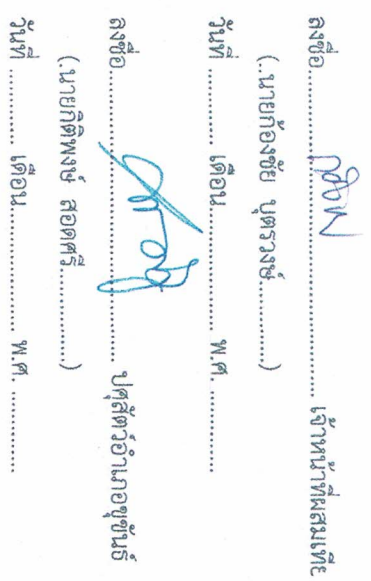 ลงชื่อ.................................................... เจ้าหน้าที่ผสมเทีย
(..นายก้องชัย บุตรวงษ์............)
วันที่.............. เดือน.......................... พ.ศ. ..............
ลงชื่อ.................................................... ปศุสัตว์อำเภอขุขันธ์
(..นายกิติพงษ์ สอดศรี...............)
วันที่.............. เดือน.......................... พ.ศ. ..............